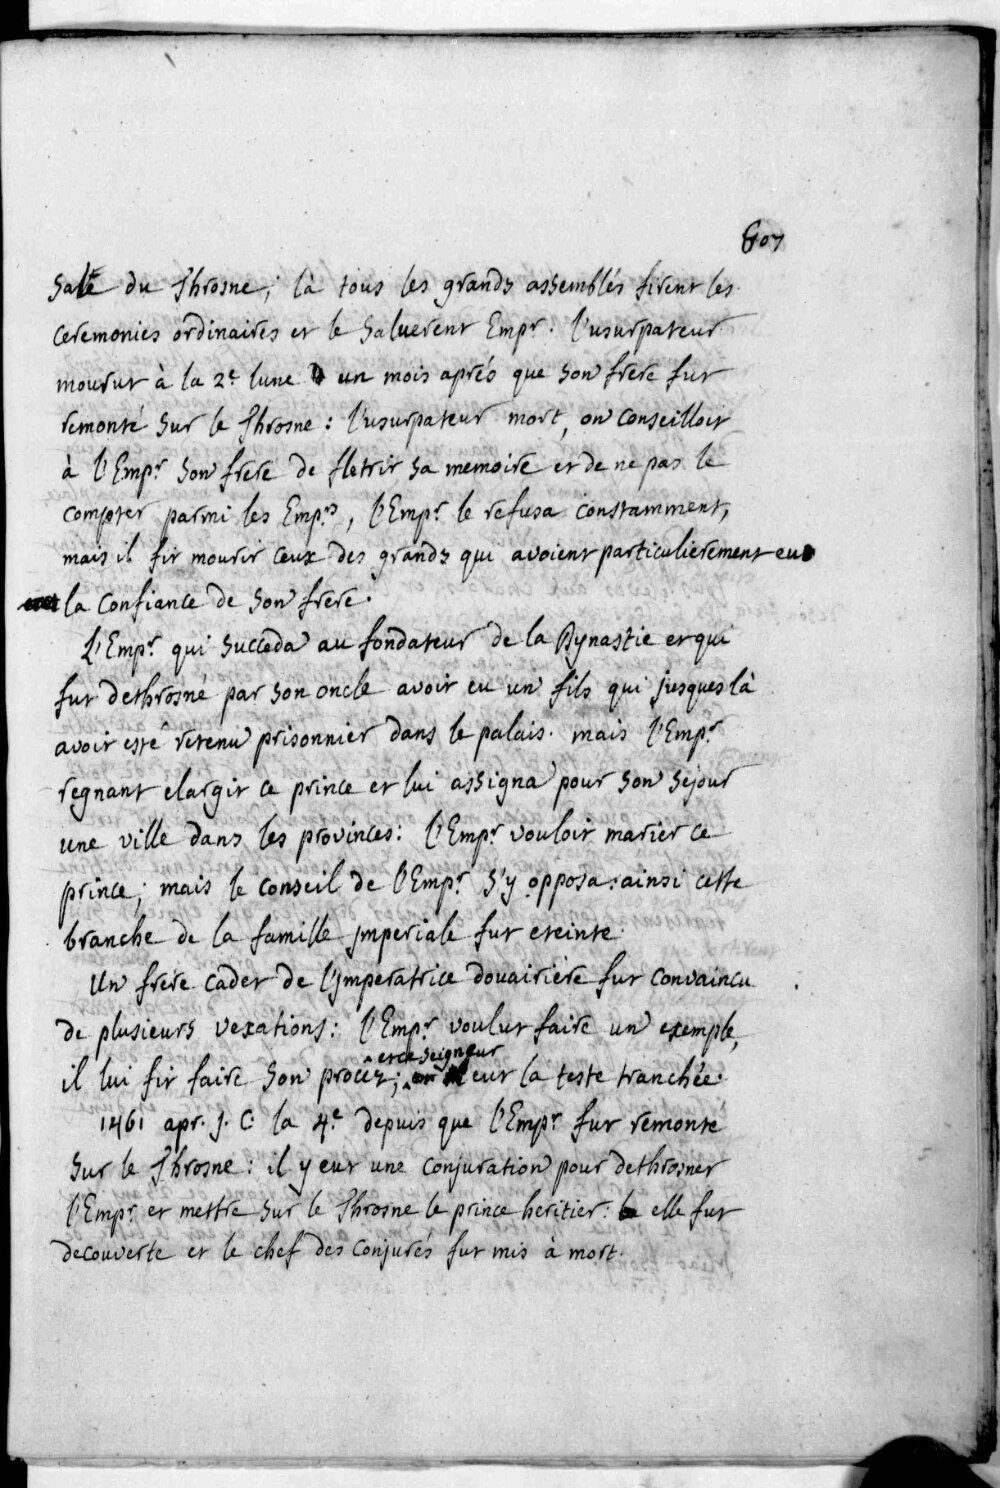 607
sale du Throsne; là tous les grands assemblés firent les
ceremonies ordinaires et le saluerent Empr. l'usurpateur
mourut à la 2e lune un mois aprés que son frere fut
remonté sur le Throsne: l'usurpateur mort, on conseilloit
à l'Empr son frere de fletrir sa memoire et de ne pas le
compter parmi les Emprs, l'Empr le refusa constamment,
mais il fit mourir ceux des grands qui avoient particulierement eu
la confiance de son frere.
L'Empr qui succeda au fondateur de la Dynastie et qui
fut dethrosné par son oncle avoit eu un fils qui jusques là
avoit esté retenu prisonnier dans le palais. mais l'Empr
regnant elargit ce prince et lui assigna pour son sejour
une ville dans les provinces: l'Empr vouloit marier ce
prince; mais le conseil de l'Empr s'y opposa: ainsi cette
branche de la famille jmperiale fut eteinte.
Un frere cadet de l'jmperatrice douairiere fut convaincu
de plusieurs vexations: l'Empr voulut faire un exemple,
et ce seigneur
il lui fit faire son procéz; eut la teste tranchée.
1461 apr. J. C. la 4e depuis que l'Empr fut remonté
sur le Throsne: il y eut une conjuration pour dethrosner
l'Empr et mettre sur le Throsne le prince heritier: elle fut
decouverte et le chef des conjurés fut mis à mort.